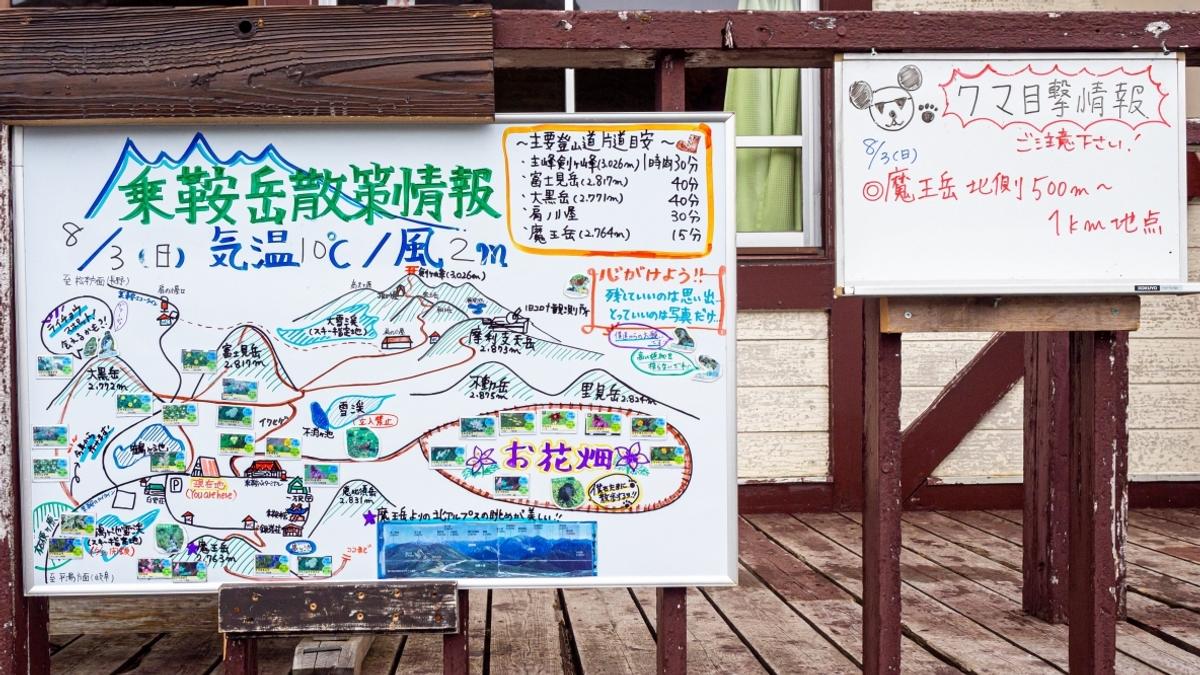 乗鞍岳散策情報
8/3(日) 気温10℃/風2m
~主要登山道片道目安~
・主峰剣ヶ峰(3.026m) 1時間30分
・富士見岳(2.817m) 40分
・大黒岳(2.771m) 40分
・肩ノ小屋 30分
・魔王岳(2.764m) 15分
心がけよう!!
残していいのは思い出…
とっていいのは写真だけ…
剣ヶ峰(3.026m)
肩の小屋
大雪渓
(スキー指定地)
旧コロナ観測所
摩利支天岳
2.873m
富士見岳
2.817m
大黒岳
2.772m
不動岳
2.875m
里見岳
2.824m
雪渓
立入禁止
不消ヶ池
お花畑
鶴ヶ池
P
現在地
(You are here)
白雲荘
恵比須岳
2.831m
魔王岳
2.763m
★魔王岳よりの北アルプスの眺めが美しい!!
クマ目撃情報
ご注意下さい!
8/3(日)
◎魔王岳 北側 500m~
1km地点
KOKUYO